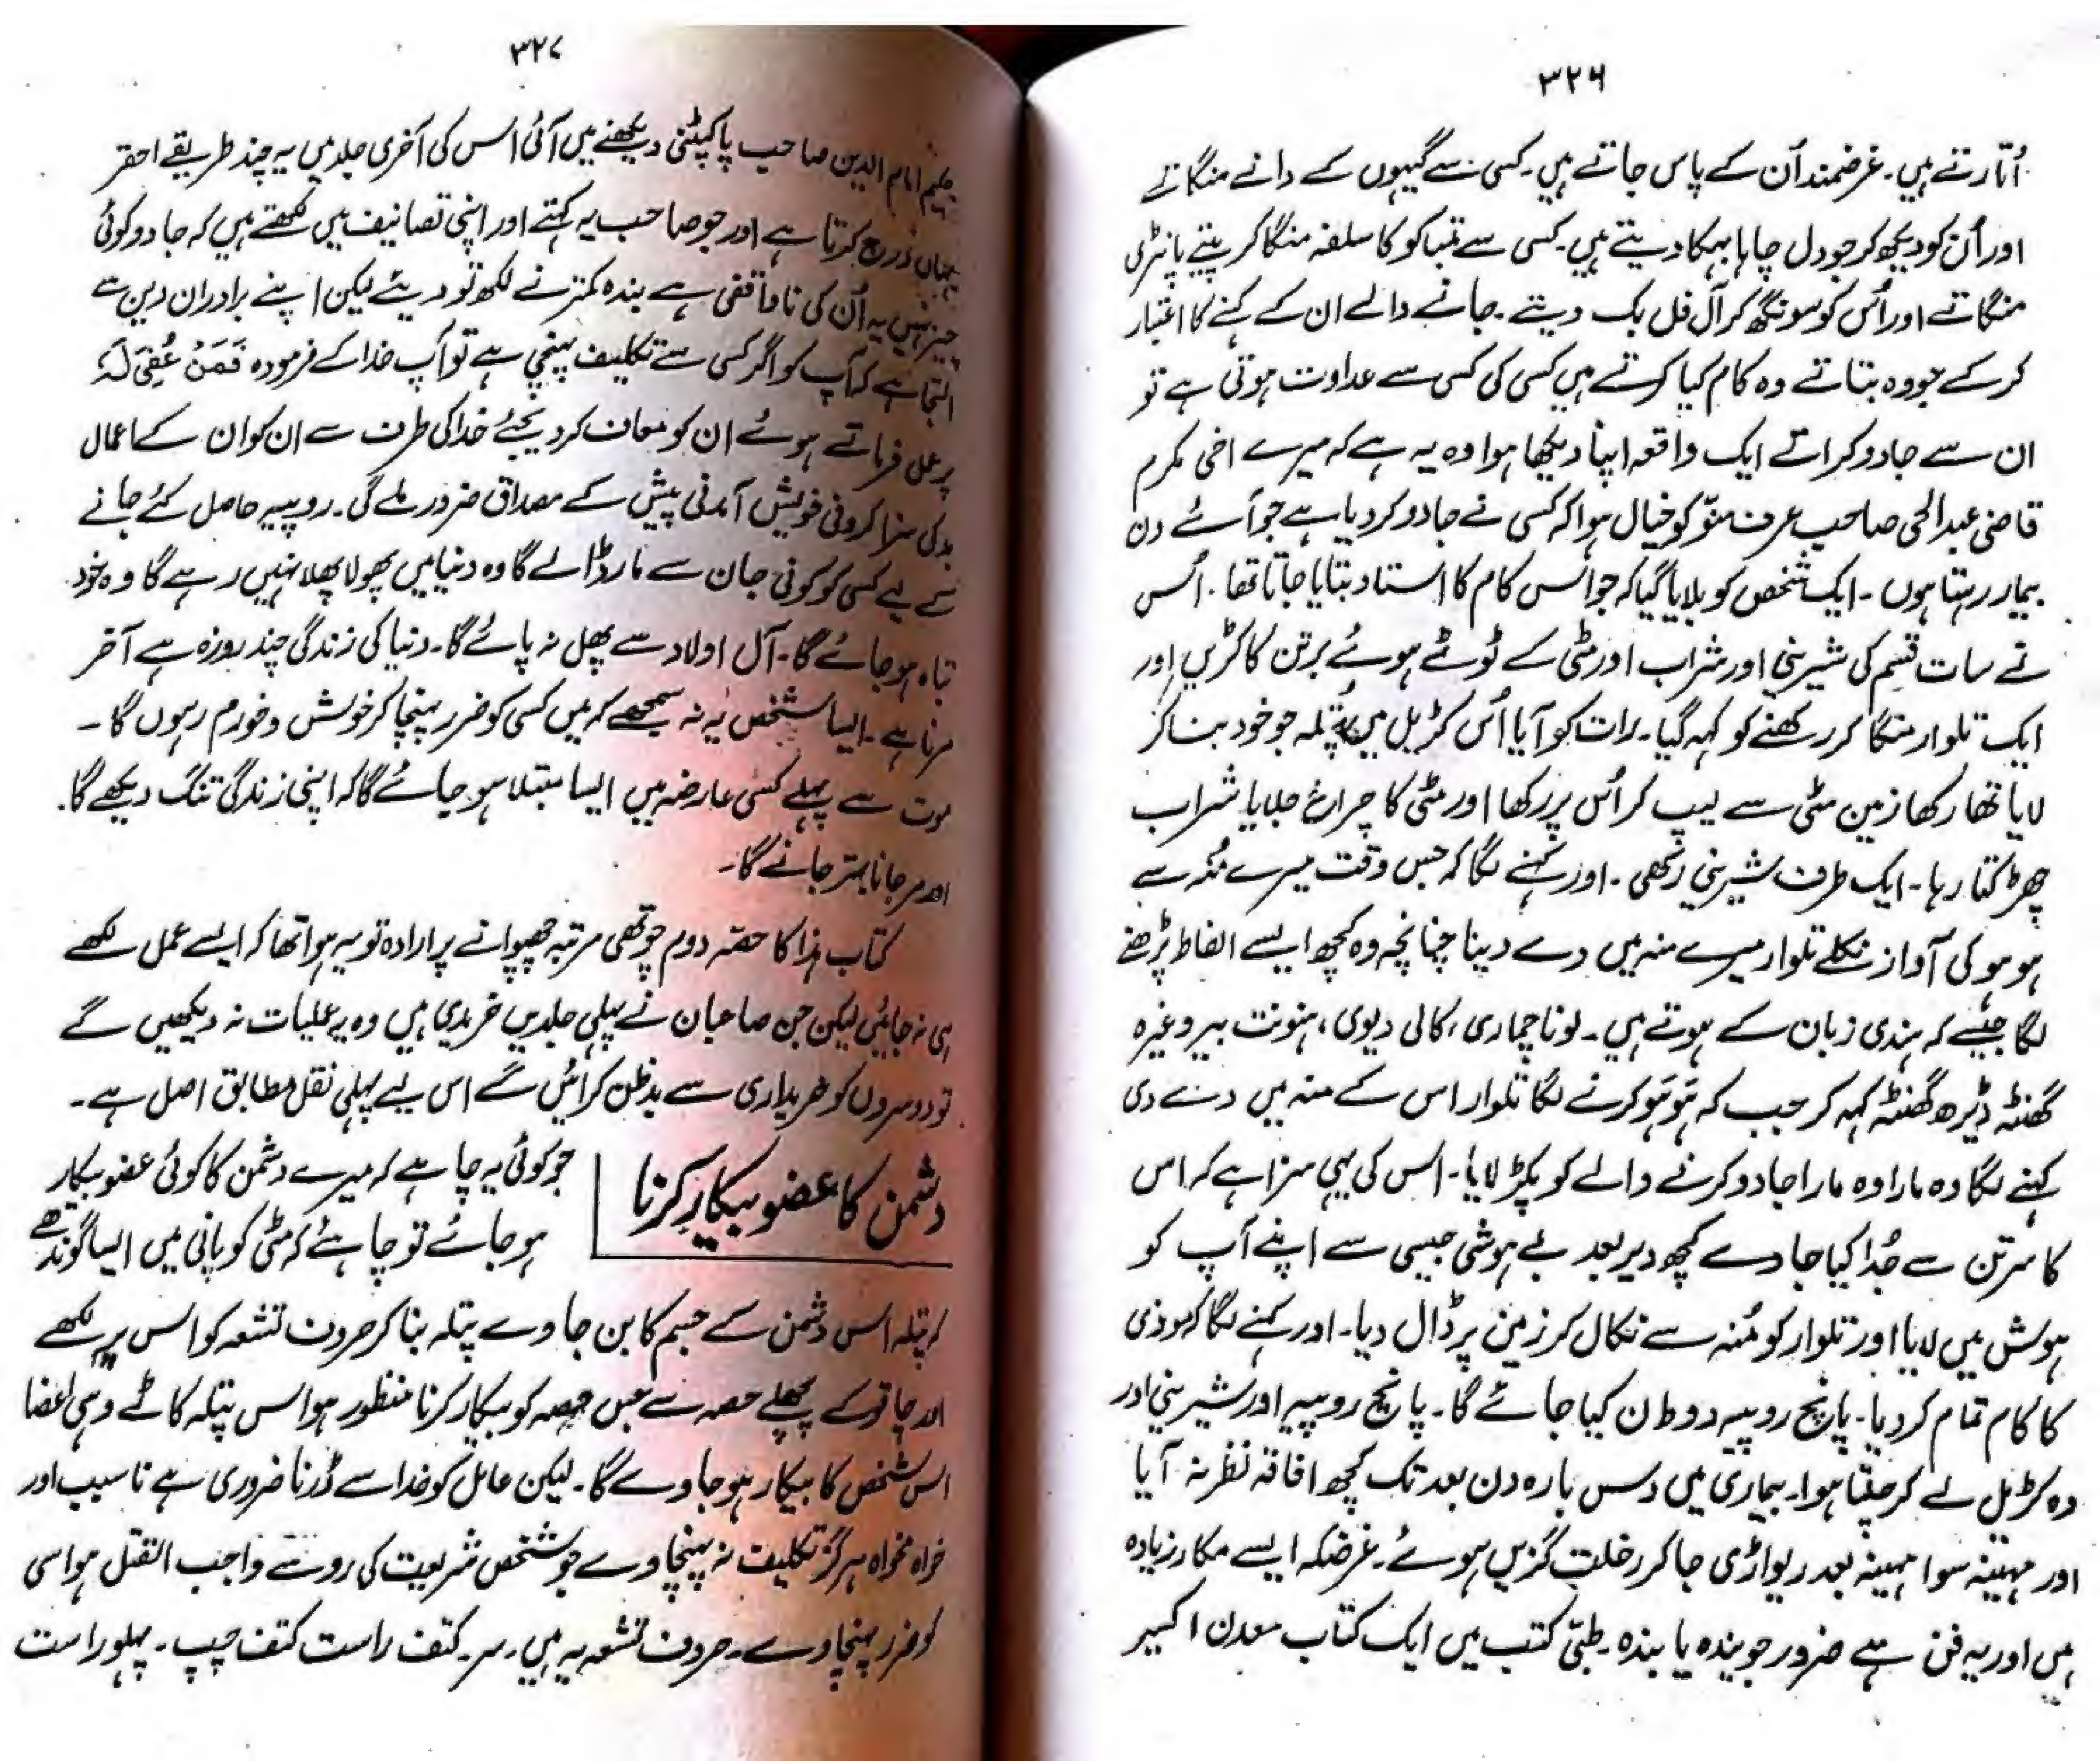 ۳۲۶
اُتارتے ہیں۔ غرضمند اُن کے پاس جاتے ہیں۔ کسی سے گیہوں کے دانے منگاتے
اور اُن کو دیکھ کر جو دل چاہا بہکا دیتے ہیں۔ کسی سے تمباکو کا سلفہ منگا کر پیتے پانٹری
منگاتے اور اُس کو سونگھ کر اَل فل بک دیتے۔ جانے والے ان کے کہنے کا اعتبار
کر کے جو وہ بتاتے وہ کام کیا کرتے ہیں کسی کی کسی سے عداوت ہوتی ہے تو
ان سے جادو کراتے ایک واقعہ اپنا دیکھا ہوا وہ یہ ہے کہ میرے اخی مکرم
قاضی عبدالحی صاحب عرف منّو کو خیال ہوا کہ کسی نے جادو کر دیا ہے جو آئے دن
بیمار رہتا ہوں۔ ایک شخص کو بلایا گیا کہ جو اس کام کا استاد بتایا جاتا تھا۔ اُس
نے سات قسم کی شیرینی اور شراب اور مٹی کے ٹوٹے ہوئے برتن کا کڑیں اور
ایک تلوار منگا کر رکھنے کو کہہ گیا۔ رات کو آیا اُس کڑبل میں پُتلہ جو خود بنا کر
لایا تھا رکھا زمین مٹی سے لیپ کر اُس پر رکھا اور مٹی کا چراغ جلایا شراب
چھڑکتا رہا۔ ایک طرف شیرینی رکھی۔ اور کہنے لگا کہ جس وقت میرے مُنہ سے
ہو ہو کی آواز نکلے تلوار میرے منہ میں دے دینا چنانچہ وہ کچھ ایسے الفاظ پڑھنے
لگا جیسے کہ ہندی زبان کے ہوتے ہیں۔ لونا چماری، کالی دیوی، ہنونت بیر وغیرہ
گھنٹہ ڈیڑھ گھنٹہ کہہ کر جب کہ ہَو ہَو کرنے لگا تلوار اس کے منہ میں دے دی
کہنے لگا وہ مارا وہ مارا جادو کرنے والے کو پکڑ لایا۔ اس کی یہی سزا ہے کہ اس
کا سر تن سے جُدا کیا جاوے کچھ دیر بعد بے ہوشی جیسی سے اپنے آپ کو
ہوش میں لایا اور تلوار کو مُنہ سے نکال کر زمین پر ڈال دیا۔ اور کہنے لگا کہ موذی
کا کام تمام کر دیا۔ پانچ روپیہ دو طن کیا جائے گا۔ پانچ روپیہ اور شیرینی اور
وہ کڑبل لے کر چلتا ہوا۔ بیماری میں دس بارہ دن بعد تک کچھ افاقہ نظر نہ آیا
اور مہینہ سوا مہینہ بعد ریواڑی جا کر رحلت گزیں ہوئے۔ غرضکہ ایسے مکار زیادہ
ہیں اور یہ فن ہے ضرور جویندہ یا بندہ۔ طبّی کتب میں ایک کتاب معدن اکسیر
۳۲۷
حکیم امام الدین صاحب پاکپٹنی دیکھنے میں آئی اس کی آخری جلد میں یہ چند طریقے احقر
یہاں درج کرتا ہے اور جو صاحب یہ کہتے اور اپنی تصانیف میں لکھتے ہیں کہ جادو کوئی
چیز نہیں یہ اُن کی ناواقفی ہے بندہ کمتر نے لکھ تو دیئے لیکن اپنے برادران دین سے
التجا ہے کہ آپ کو اگر کسی سے تکلیف پہنچی ہے تو آپ خدا کے فرمودہ فَمَنْ عُفِیَ لَہٗ
پر عمل فرماتے ہوئے ان کو معاف کر دیجئے خدا کی طرف سے ان کو ان کے اعمال
بد کی سزا کردنی خویش آمدنی پیش کے مصداق ضرور ملے گی۔ روپیہ حاصل کئے جانے
کے لیے کسی کو کوئی جان سے مار ڈالے گا وہ دنیا میں پھولا پھلا نہیں رہے گا وہ خود
تباہ ہو جائے گا۔ آل اولاد سے پھل نہ پائے گا۔ دنیا کی زندگی چند روزہ ہے آخر
مرنا ہے۔ ایسا شخص یہ نہ سمجھے کہ میں کسی کو ضرر پہنچا کر خوش و خورم رہوں گا۔
موت سے پہلے کسی عارضہ میں ایسا مبتلا ہو جائے گا کہ اپنی زندگی تنگ دیکھے گا۔
اور مر جانا بہتر جانے گا۔
کتاب ہذا کا حصّہ دوم چوتھی مرتبہ چھپوانے پر ارادہ تو یہ ہوا تھا کہ ایسے عمل لکھے
ہی نہ جائیں لیکن جن صاحبان نے پہلی جلدیں خریدی ہیں وہ یہ عملیات نہ دیکھیں گے
تو دوسروں کو خریداری سے بدظن کرائیں گے اس لیے پہلی نقل مطابق اصل ہے۔
دشمن کا عضو بیکار کرنا
جو کوئی یہ چاہے کہ میرے دشمن کا کوئی عضو بیکار
ہو جائے تو چاہئے کہ مٹی کو پانی میں ایسا گوندھے
کہ پتلہ اس دشمن کے جسم کا بن جاوے پتلہ بنا کر حروف تشعہ کو اس پر لکھے
اور چاقو کے پچھلے حصہ سے جس حصہ کو بیکار کرنا منظور ہو اس پتلہ کا کاٹے وہی اعضا
اس شخص کا بیکار ہو جاوے گا۔ لیکن عامل کو خدا سے ڈرنا ضروری ہے نا سبب اور
خواہ مخواہ ہرگز تکلیف نہ پہنچاوے جو شخص شریعت کی روسے واجب القتل ہو اسی
کو ضرر پہنچاوے۔ حروف تشعہ یہ ہیں۔ سر۔ کتف راست کتف چپ۔ پہلو راست